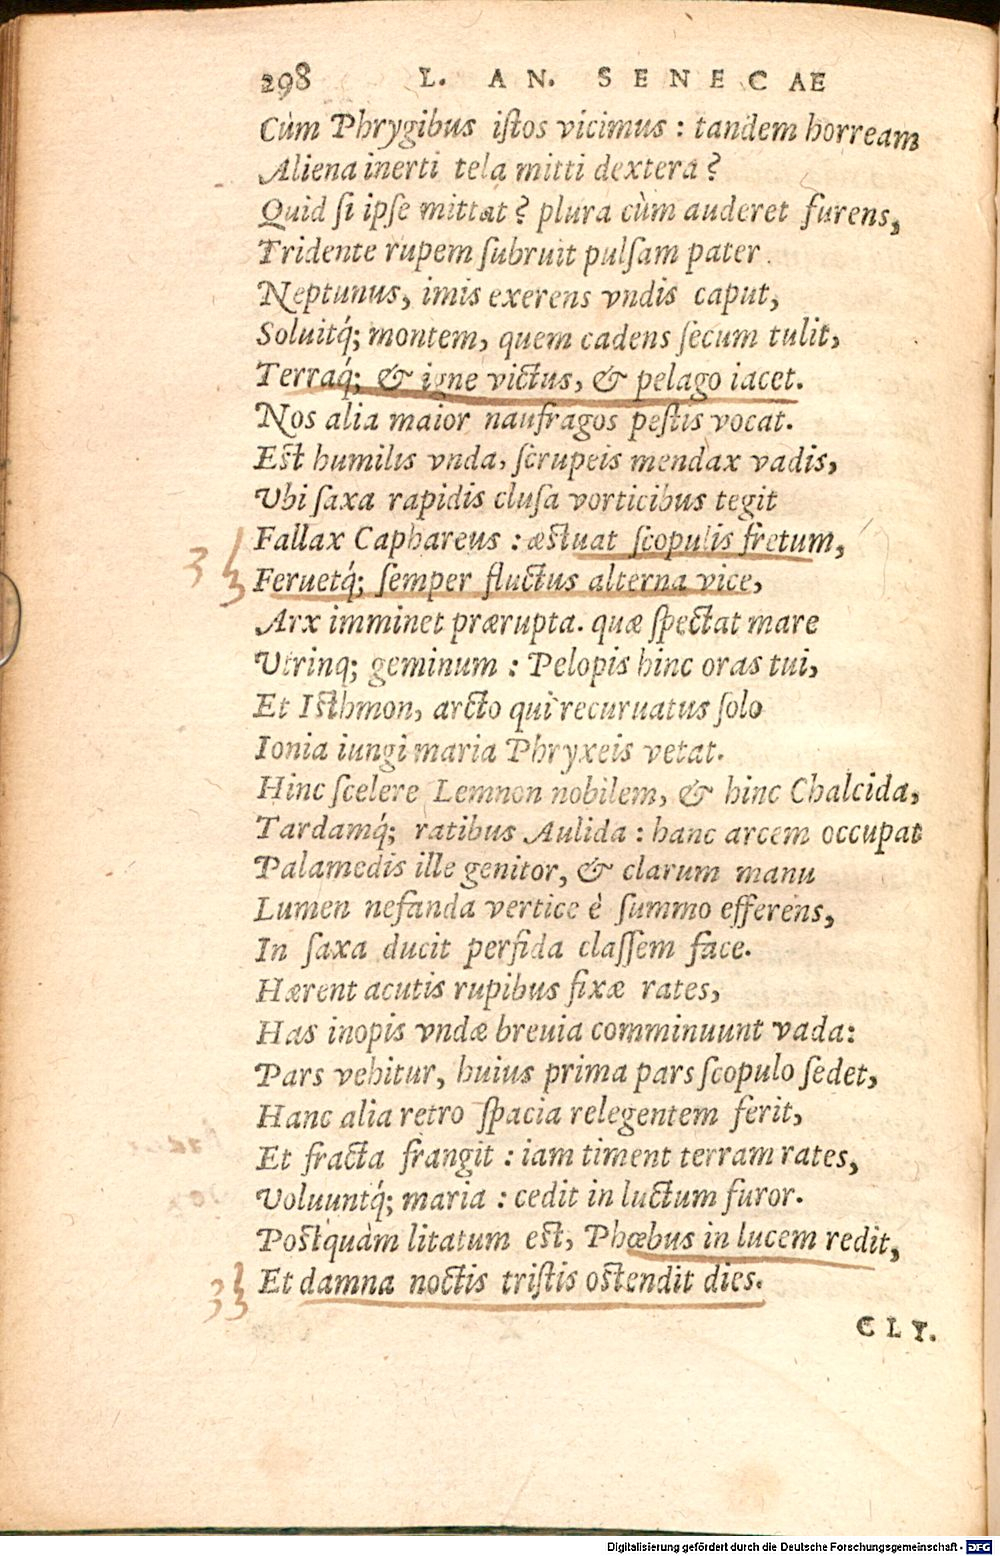 298 L. AN. SENECAE
Cùm Phrygibus iſtos vicimus : tandem horream
Aliena inerti tela mitti dextera?
Quid ſi ipſe mittat? plura cùm auderet furens,
Tridente rupem ſubruit pulſam pater.
Neptunus, imis exerens vndis caput,
Soluitq́; montem, quem cadens ſecum tulit,
Terraq́; & igne victus, & pelago iacet.
Nos alia maior naufragos peſtis vocat.
Est humilis vnda, ſcrupeis mendax vadis,
Vbi ſaxa rapidis cluſa vorticibus tegit
Fallax Caphareus : æstuat ſcopulis fretum,
Feruetq́; ſemper fluctus alterna vice,
Arx imminet prærupta. quæ ſpectat mare
Vtrinq; geminum : Pelopis hinc oras tui,
Et Isthmon, arcto qui recuruatus ſolo
Ionia iungi maria Phryxeis vetat.
Hinc ſcelere Lemnon nobilem, & hinc Chalcida,
Tardamq́; ratibus Aulida : hanc arcem occupat
Palamedis ille genitor, & clarum manu
Lumen nefanda vertice è ſummo efferens,
In ſaxa ducit perfida claſſem face.
Hærent acutis rupibus fixæ rates,
Has inopis vndæ breuia comminuunt vada:
Pars vehitur, huius prima pars ſcopulo ſedet,
Hanc alia retro ſpacia relegentem ferit,
Et fracta frangit : iam timent terram rates,
Voluuntq́; maria : cedit in luctum furor.
Postquàm litatum est, Phœbus in lucem redit,
Et damna noctis triſtis ostendit dies.
CLY.
Digitalisierung gefördert durch die Deutsche Forschungsgemeinschaft - DFG